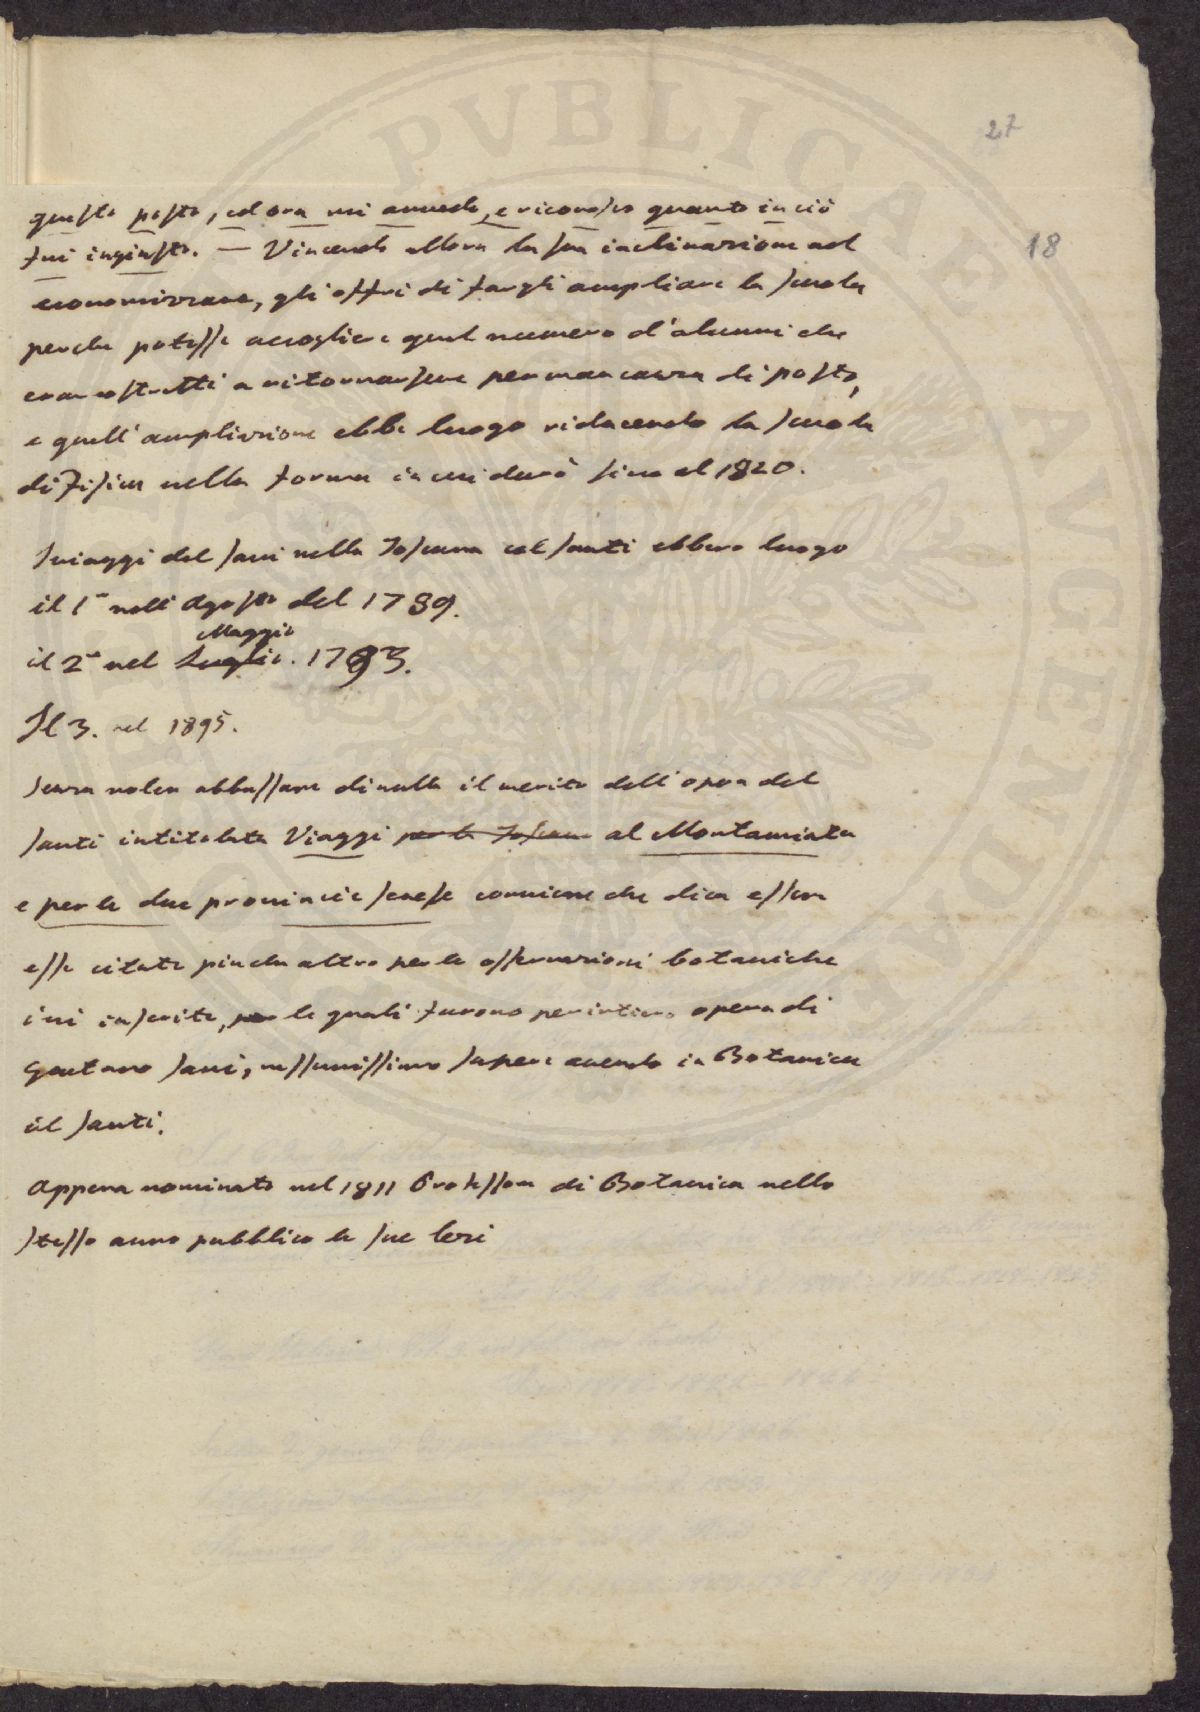 27
18
questo posto, ed ora mi avvedo, e riconosco quanto in ciò
fui ingiusto. — Vincendo allora la sua inclinazione ad
economizzare, gli offrì di fargli ampliare la scuola
perche potesse accogliere quel numero d'alunni che
eran costretti a ritornarsene per mancanza di posto,
e quell'ampliazione ebbe luogo riducendo la scuola
di Fisica nella forma in cui durò sino al 1820.
I viaggi del Savi nella Toscana col Santi ebbero luogo
il 1° nell'Agosto del 1789.
Maggio
il 2° nel Luglio. 1793.
Il 3. nel 1895.
Senza voler abbassare di nulla il merito dell'opera del
Santi intitolata Viaggi per la Toscana al Montamiata
e per le due provincie senese conviene che dica essere
esse citate più che altro per le osservazioni botaniche
ivi inserite, per le quali furono per intiero opera di
Gaetano Savi, nessunissimo sapere avendo in Botanica
il Santi.
Appena nominato nel 1811 Professore di Botanica nello
stesso anno pubblico le sue lezi
PVBLICAE